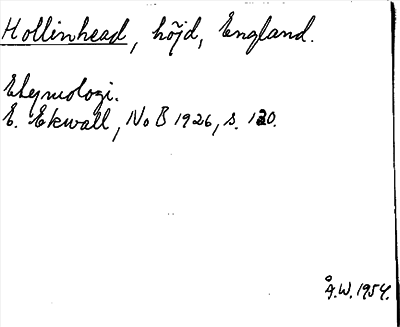 Hollinhead, höjd, England.
Etymologi.
E. Ekwall, No B 1926, s. 120.
Å.W. 1954.